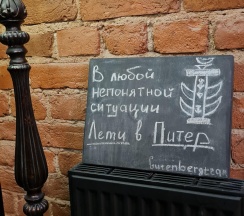 В любой
непонятной
ситуации
Лети в Питер